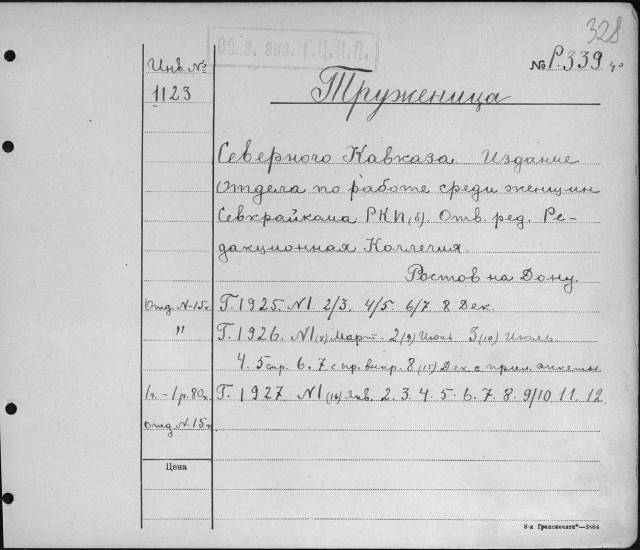 328
Инв №
1123
№ Р.339 4°
Труженица
Северного Кавказа. Издание
Отдела по работе среди женщин
Севкрайкома РКП(б). Отв. ред. Ре-
дакционная Коллегия.
Ростов на Дону.
Отд. №-15к. Г. 1925. №1 2/3. 4/5. 6/7. 8 Дек.
" Г. 1926. №1(8) Март. 2(9) Июнь 3(10) Июль
4. 5 6. 7 с 8(15) Дек. с прил. анкеты
1г. - 1р. 80к. Г. 1927 №1(16) Янв. 2. 3. 4. 5. 6. 7. 8. 9/10. 11. 12
отд. №15к.
Цена